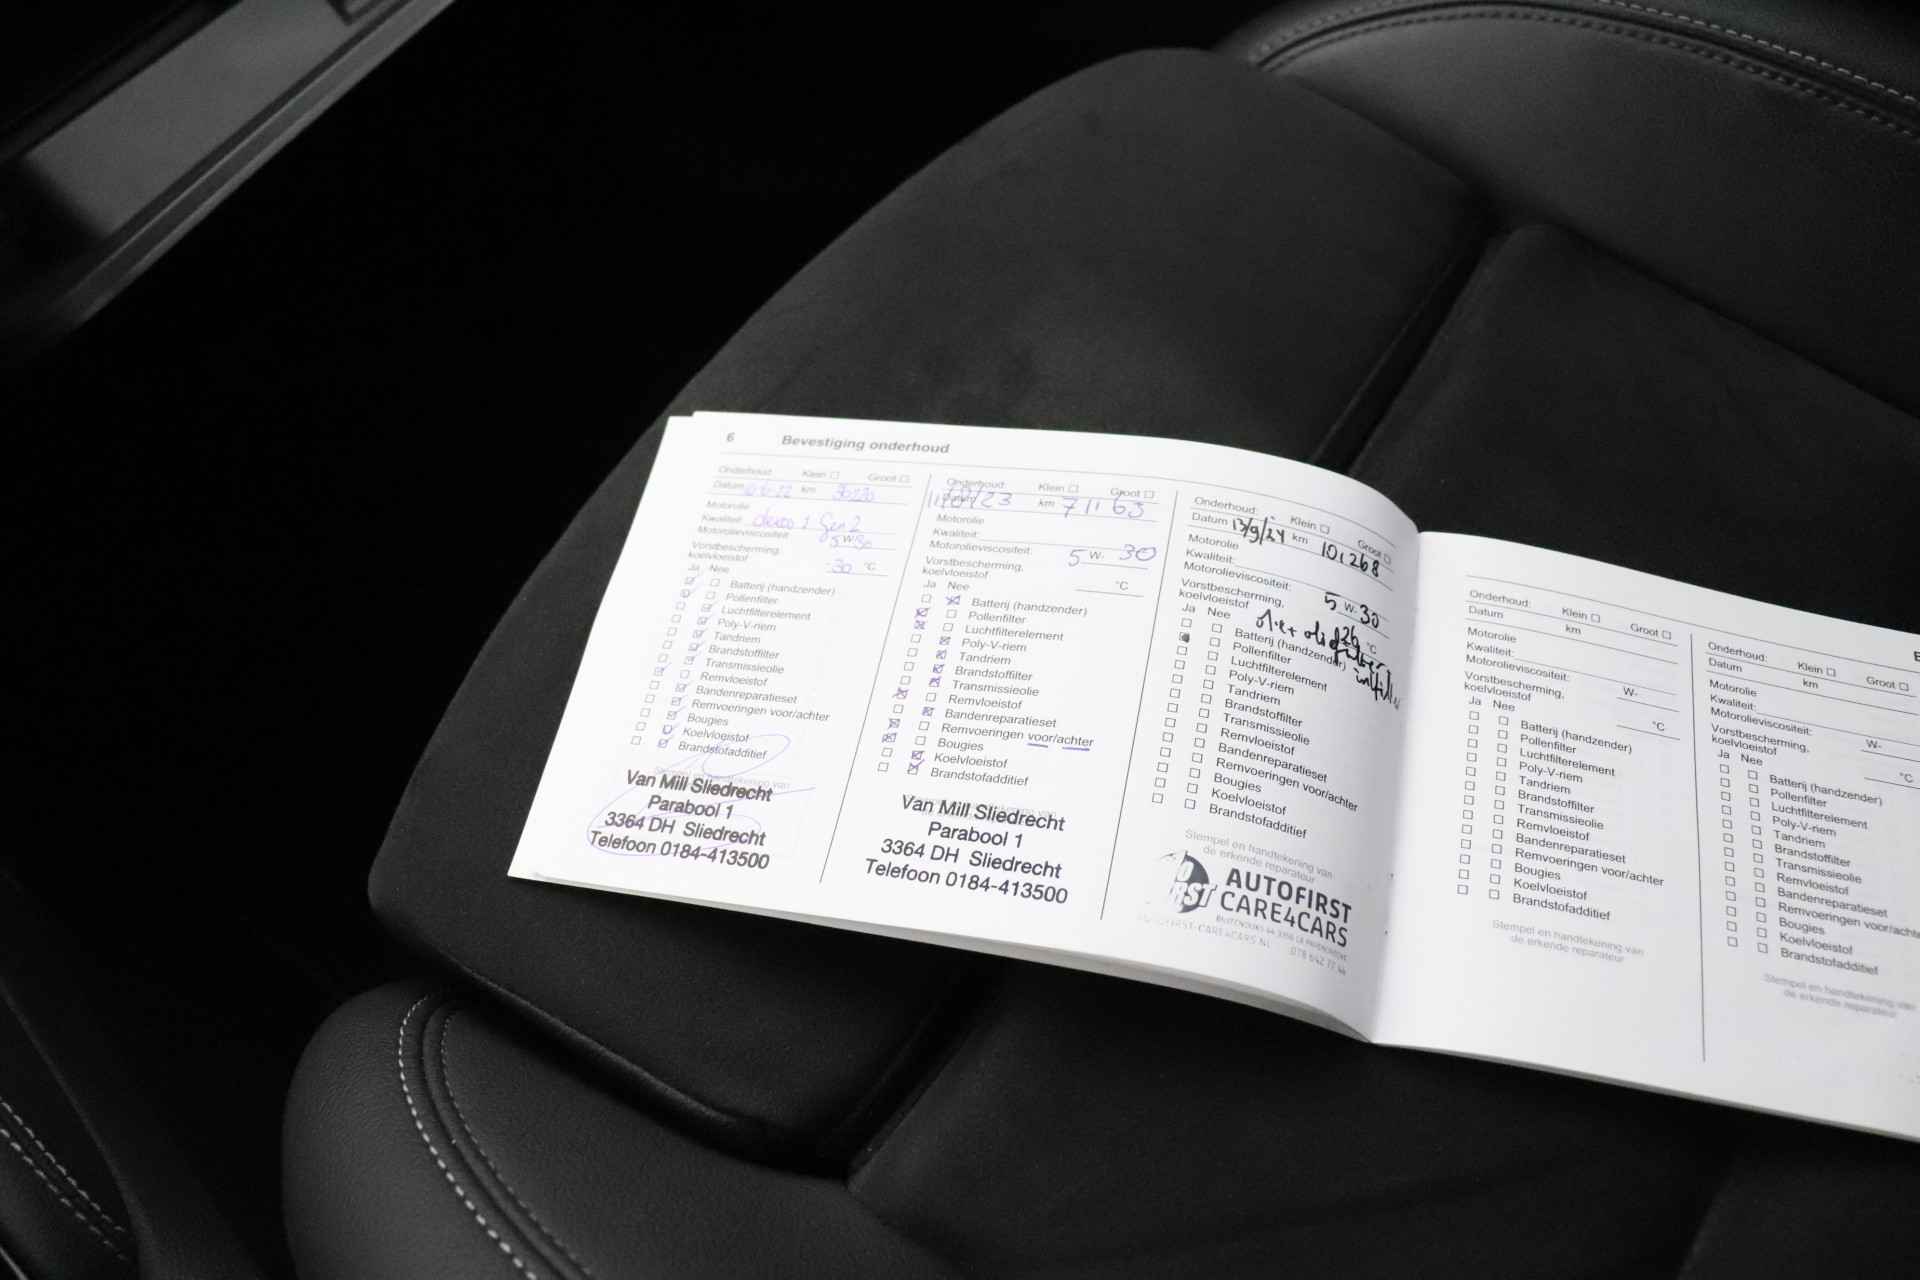 6 Bevestiging onderhoud
Onderhoud: Klein ☐ Groot ☐
Datum km
Motorolie
Kwaliteit: dexos 1 Gen 2
Motorolieviscositeit 5 W- 30
Vorstbescherming,
koelvloeistof -30 °C
Ja Nee
Batterij (handzender)
Pollenfilter
Luchtfilterelement
Poly-V-riem
Tandriem
Brandstoffilter
Transmissieolie
Remvloeistof
Bandenreparatieset
Remvoeringen voor/achter
Bougies
Koelvloeistof
Brandstofadditief
Van Mill Sliedrecht
Parabool 1
3364 DH Sliedrecht
Telefoon 0184-413500
Onderhoud: Klein ☐ Groot ☐
Datum km 71163
Motorolie
Kwaliteit:
Motorolieviscositeit: 5 W- 30
Vorstbescherming,
koelvloeistof °C
Ja Nee
Batterij (handzender)
Pollenfilter
Luchtfilterelement
Poly-V-riem
Tandriem
Brandstoffilter
Transmissieolie
Remvloeistof
Bandenreparatieset
Remvoeringen voor/achter
Bougies
Koelvloeistof
Brandstofadditief
Van Mill Sliedrecht
Parabool 1
3364 DH Sliedrecht
Telefoon 0184-413500
Onderhoud: Klein ☐ Groot ☐
Datum 13/9/24 km 101268
Motorolie
Kwaliteit:
Motorolieviscositeit: 5 W- 30
Vorstbescherming,
koelvloeistof °C
Ja Nee
Batterij (handzender)
Pollenfilter
Luchtfilterelement
Poly-V-riem
Tandriem
Brandstoffilter
Transmissieolie
Remvloeistof
Bandenreparatieset
Remvoeringen voor/achter
Bougies
Koelvloeistof
Brandstofadditief
Stempel en handtekening van
de erkende reparateur
AUTOFIRST
CARE4CARS
078 642 77 44
Onderhoud: Klein ☐ Groot ☐
Datum km
Motorolie
Kwaliteit:
Motorolieviscositeit: W-
Vorstbescherming,
koelvloeistof °C
Ja Nee
Batterij (handzender)
Pollenfilter
Luchtfilterelement
Poly-V-riem
Tandriem
Brandstoffilter
Transmissieolie
Remvloeistof
Bandenreparatieset
Remvoeringen voor/achter
Bougies
Koelvloeistof
Brandstofadditief
Stempel en handtekening van
de erkende reparateur
Onderhoud: Klein ☐ Groot ☐
Datum km
Motorolie
Kwaliteit:
Motorolieviscositeit: W-
Vorstbescherming,
koelvloeistof °C
Ja Nee
Batterij (handzender)
Pollenfilter
Luchtfilterelement
Poly-V-riem
Tandriem
Brandstoffilter
Transmissieolie
Remvloeistof
Bandenreparatieset
Remvoeringen voor/achte
Bougies
Koelvloeistof
Brandstofadditief
Stempel en handtekening van
de erkende reparateur